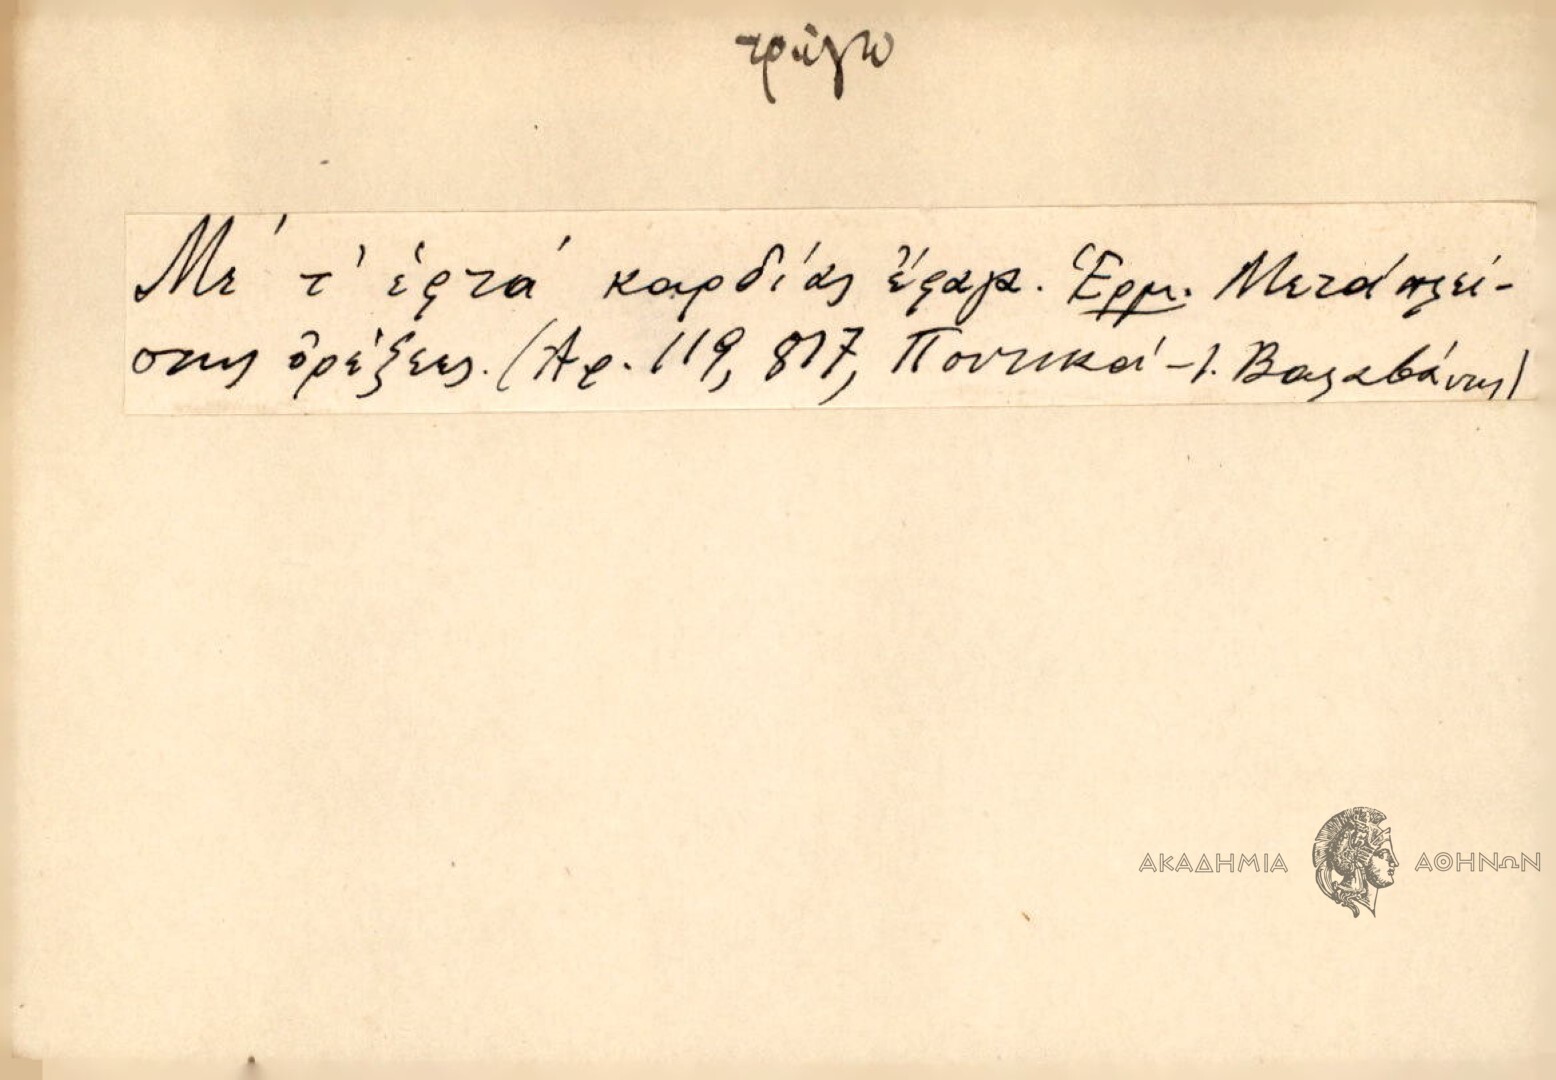 τρώγω
Μέ τ' ἑφτά καρδίας ἔφαγα. Ἑρμ. Μετά πλεί-
στης ὀρέξεως. (Αρ. 119, 817, Ποντικά - Ι. Βαλαβάνης)
ΑΚΑΔΗΜΙΑ ΑΘΗΝΩΝ